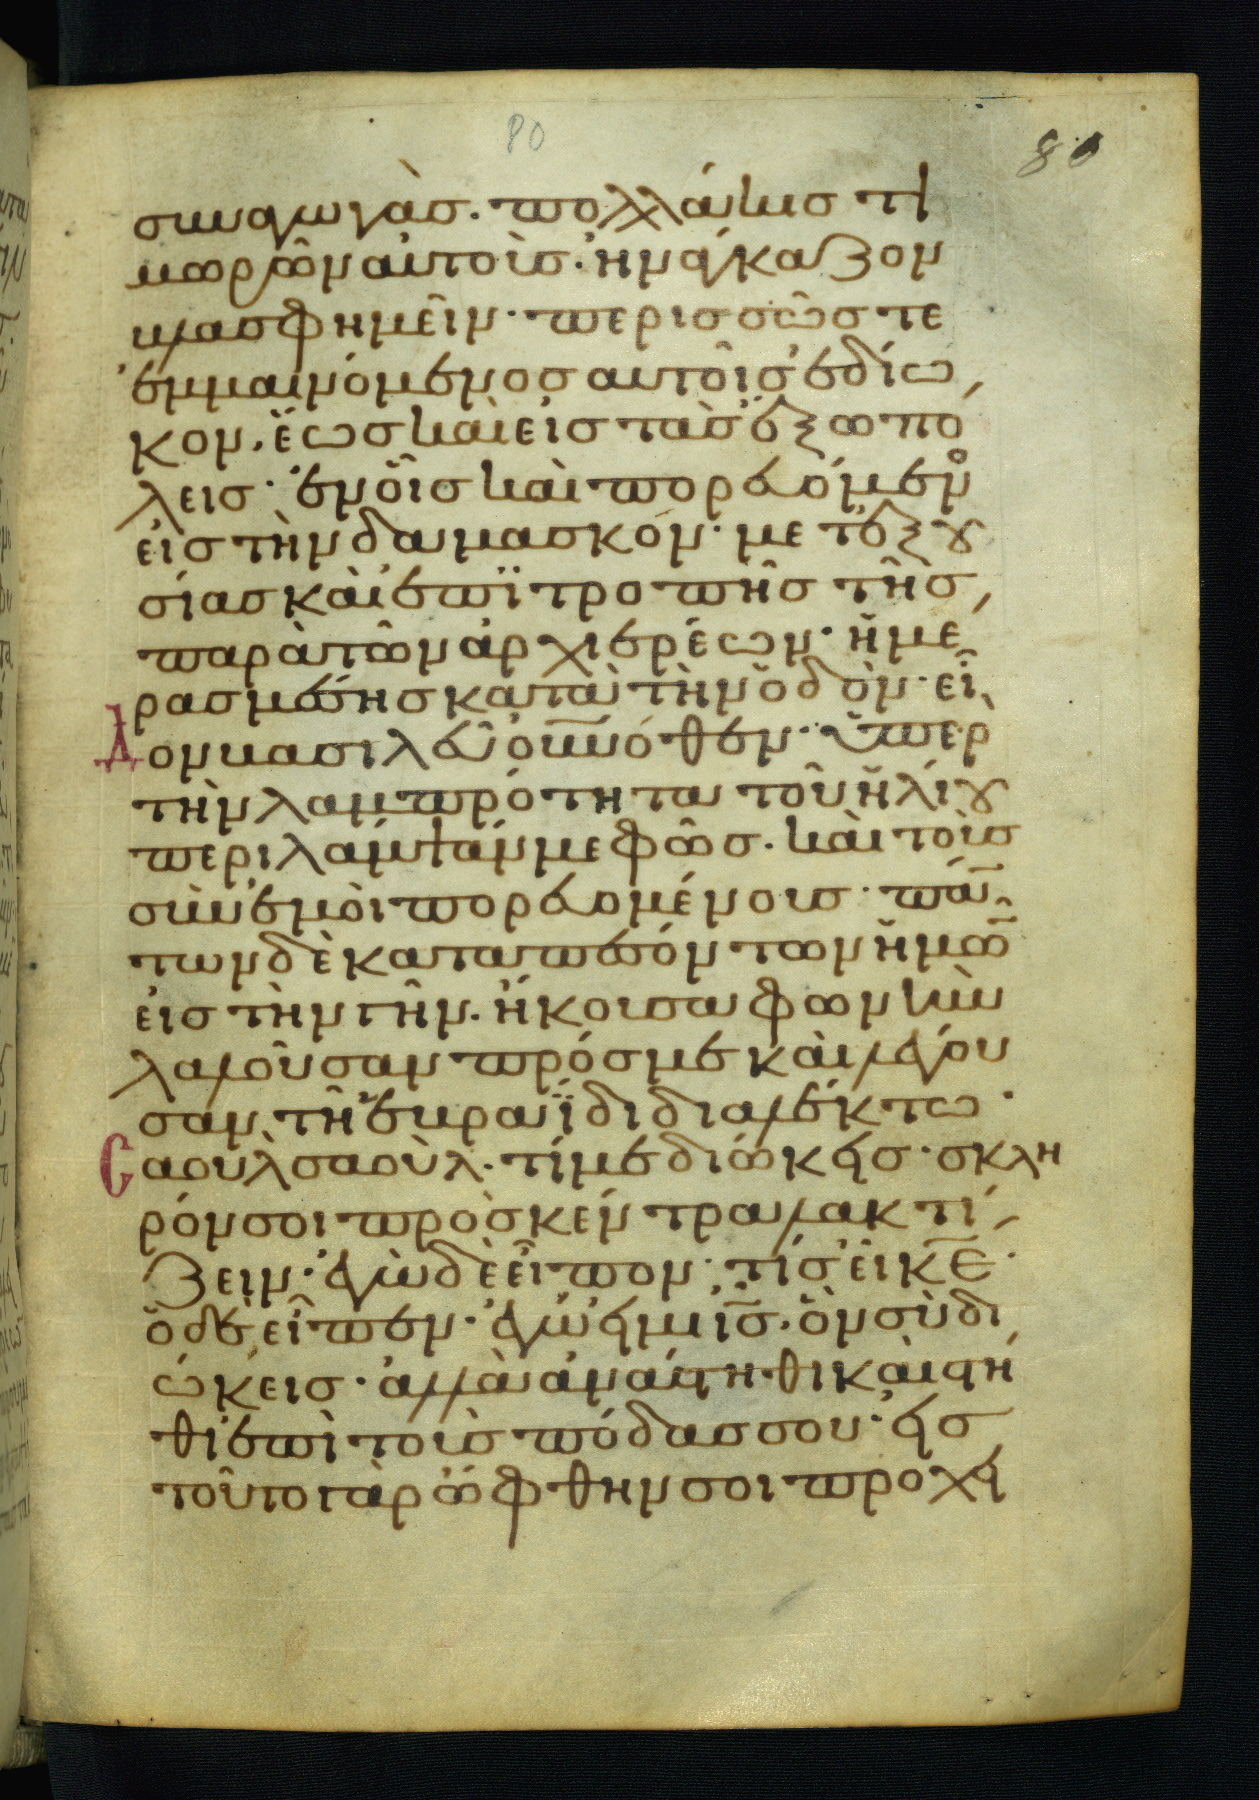 80
80
συναγωγὰσ. πολλάκισ τι
μωρῶν αὐτοὺσ· ἠνάγκαζον
βλασφημεῖν· περισσῶσ τε
ἐμμαινόμενοσ αὐτοῖσ ἐδίω,
κον. ἕωσ καὶ εἰσ τὰσ ἔξω πό
λεισ· ἐν οἷσ καὶ πορευόμενο
εἰσ τὴν δαμασκόν· μετ' ἐξου
σίασ καὶ ἐπϊτροπῆσ τῆσ,
παρὰ τῶν ἀρχιερέων· ἡμέ
ρασ μέσησ κατὰ τὴν ὁδὸν· εἶ,
δον βασιλεῦ οὐ̅νόθεν· ὑπὲρ
τὴν λαμπρότητα τοῦ ἡλίου
περιλάμψάν με φῶσ. καὶ τοὺσ
σὺν ἐμοὶ πορευομένουσ· πά̅ν
των δὲ καταπεσόντων ἡμῶ̅
εἰσ τὴν γῆν. ἤκουσα φωνὴν
λαλοῦσαν πρόσ με καὶ λέγου
σαν. τῆ ἑβραΐδι διαλέκτω·
Σαουλ σαούλ. τί με διώκεισ· σκλη
ρόν σοι πρὸσ κέντρα λακτί,
ζειν· ἐγὼ δὲ εἶπον· τίσ εἶ κ̅ε̅·
ὁ δὲ εἶπεν· ἐγώ εἰμι ἰ̅σ̅. ὃν σὺ δι
ώκεισ· ἀλλὰ ἀνάστηθι καὶ στῆ
θι ἐπὶ τοὺσ πόδασ σου· εἰσ
τοῦτο γὰρ ὤφθην σοι προχει